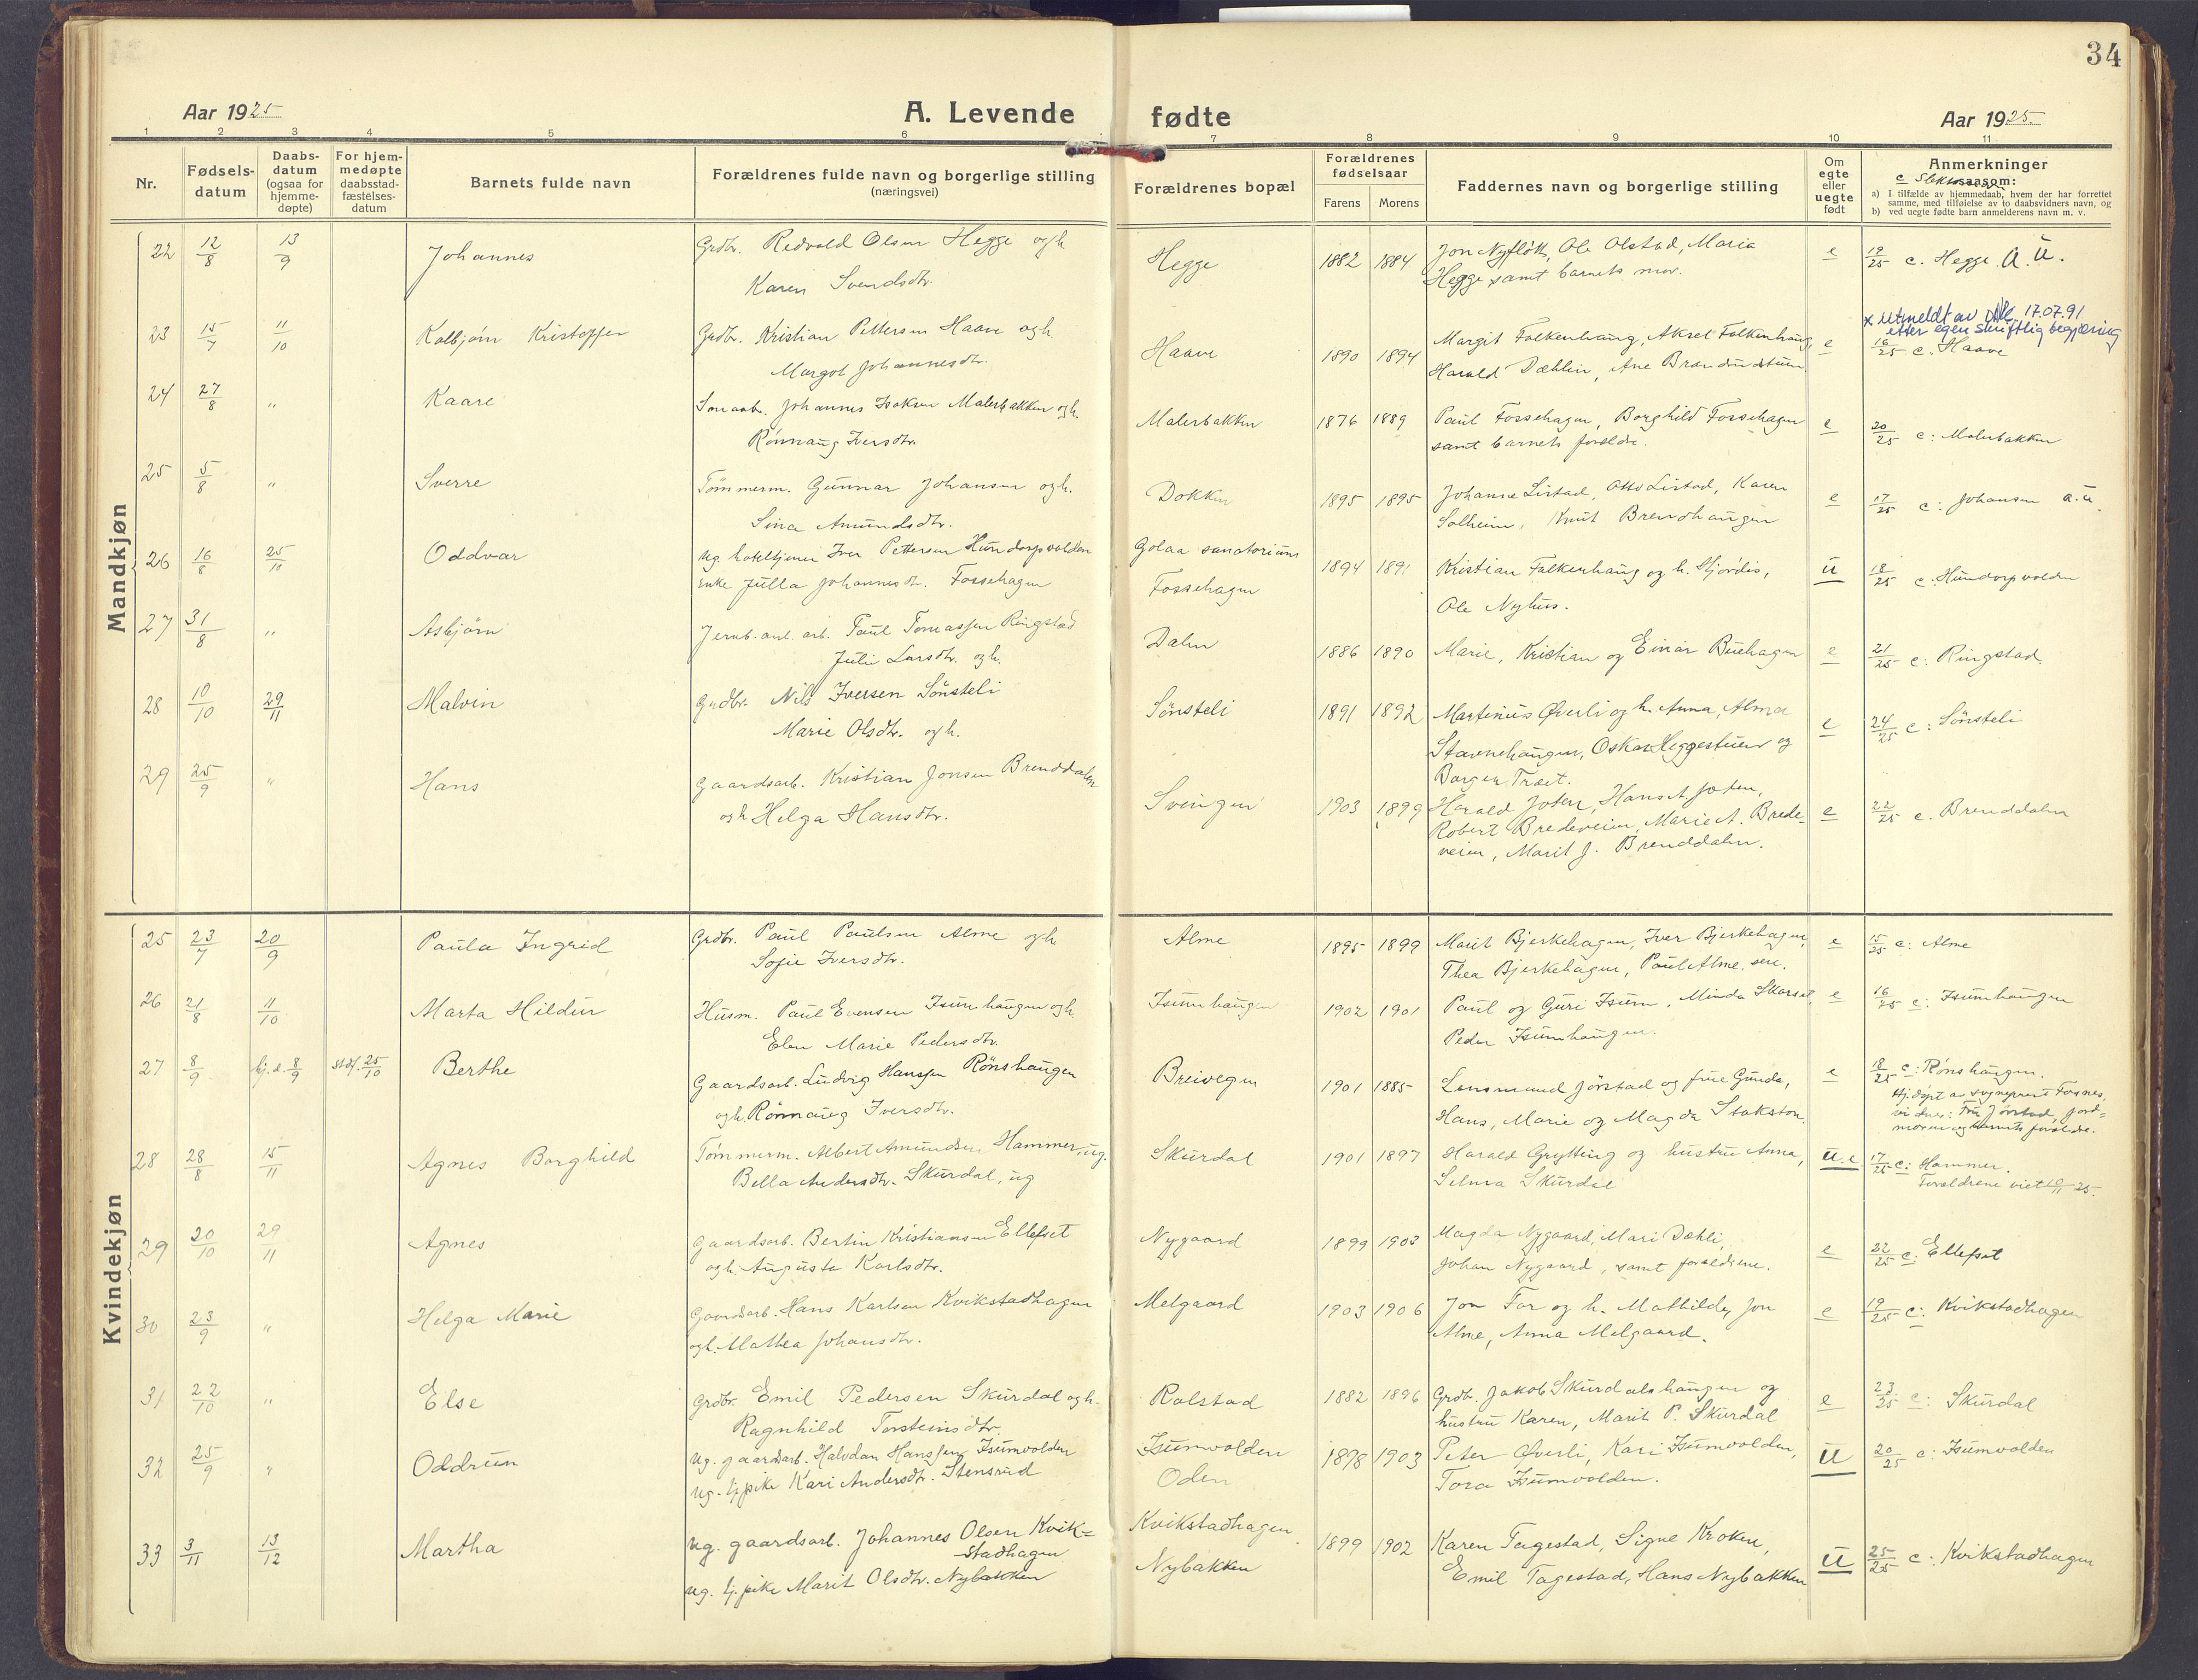 34
Aar 1925
A. Levende fødte
Aar 1925.
1 2 3 4 5 6 7 8 9 10 11
Nr.
Fødsels-
datum
Daabs-
datum
(ogsaa for
hjemme-
døpte)
For hjem-
medøpte
daabsstad-
fæstelses-
datum
Barnets fulde navn
Forældrenes fulde navn og borgerlige stilling
(næringsvei)
Forældrenes bopæl
Forældrenes
fødselsaar
Farens Morens
Faddernes navn og borgerlige stilling
Om
egte
eller
uegte
født
Anmerkninger
saasom:
a) I tilfælde av hjemmedaab, hvem der har forrettet
samme, med tilføielse av to daabsvidners navn, og
b) ved uegte fødte barn anmelderens navn m. v.
Mandkjøn
22 12/8 13/9 Johannes Grdbr. Redvald Olsen Hegge og h. Hegge 1882 1884 Jon Nyfløtt, Ole Olstad, Maria e 19/25 c. Hegge. a. u.
Karen Svendsdtr. Hegge samt barnets mor.
x utmeldt av DNK 17.07.91
etter egen skriftlig begjæring
23 15/7 11/10 Kolbjørn Kristoffer Grdbr. Kristian Pettersen Haave og h. Haave 1890 1894 Margit Falkenhaug, Aksel Falkenhaug, e 16/25 c. Haave
Margot Johannesdtr. Harald Dæhlin, Ane Brandudstuen.
24 27/8 " Kaare Smaabr. Johannes Isaksen Malerbakken og h. Malerbakken 1876 1889 Paul Fossehagen, Borghild Fossehagen e 20/25 c: Malerbakken
Rønnaug Iversdtr. samt barnets foreldre.
25 5/8 " Sverre Tømmerm. Gunnar Johansen og h. Dokken 1895 1895 Johanne Listad, Otto Listad, Karen e 17/25 c: Johansen a. u.
Sina Amundsdtr. Solheim, Knut Brendhaugen
26 16/8 25/10 Oddvar ug. hoteltjener Iver Pettersen Hundorpvolden Golaa sanatorium 1894 1891 Kristian Falkenhaug og h. Hjørdis, u 18/25 c: Hundorpvolden
enke Julla Johannesdtr. Fossehagen Fossehagen Ole Nyhus.
27 31/8 " Asbjørn Jernb.anl. arb. Paul Tomassen Ringstad Dalen 1886 1890 Marie, Kristian og Einar Buehagen e 21/25 c: Ringstad.
Julie Larsdtr. og h.
28 10/10 29/11 Malvin Grdbr. Nils Iversen Sønsteli Sønsteli 1891 1892 Martinus Øverli og h. Anna, Alma e 24/25 c: Sønsteli
Marie Olsdtr. og h. Stavnehaugen, Oskar Heggestuen og
Borger Træet.
29 25/9 " Hans Gaardsarb. Kristian Jonsen Brenddalen Svingen 1903 1899 Harald Joten, Hanset Joten, e 22/25 c. Brenddalen
og h Helga Hansdtr. Robert Bredeveien, Marie A. Brede-
veien, Marit J. Brenddalen.
Kvindekjøn
25 23/7 20/9 Paula Ingrid Grdbr. Paul Paulsen Alme og h Alme 1895 1899 Marit Bjerkehagen, Iver Bjerkehagen, e 15/25 c: Alme
Sofie Iversdtr. Thea Bjerkehagen, Paul Alme, sen.
26 21/8 11/10 Marta Hildur Husm. Paul Evensen Isumhaugen og h. Isumhaugen 1902 1901 Paul og Guri Isum, Minda Skarset, e 16/25 c: Isumhaugen
Elen Marie Pedersdtr. Peder Isumhaugen.
27 8/9 hj. d. 8/9 stdf. 25/10 Berthe Gaardsarb. Ludvig Hanssen Rønshaugen Breivegen 1901 1885 Lensmand Jørstad og frue Gunda, e 18/25 c: Rønshaugen.
og h. Rønnaug Iversdtr. Hans, Marie og Magda Stokston Hj.døpt av sogneprest Forsnes,
vidner: Fru Jørstad, jord-
moren og barnets foreldre.
28 28/8 15/11 Agnes Borghild Tømmerm. Albert Amundsen Hammer, ug. Skurdal 1901 1897 Harald Grytting og hustru Anna, u. e 17/25 c: Hammer.
Bella Andersdtr. Skurdal, ug Selma Skurdal Foreldrene viet 25.
29 20/10 29/11 Agnes Gaardsarb. Bertin Kristiansen Ellefset Nygaard 1899 1903 Magda Nygaard, Mari Dæhli, e 22/25 c: Ellefset
og h. Augusta Karlsdtr. Johan Nygaard, samt foreldrene.
30 23/9 " Helga Marie Gaardsarb. Hans Karlsen Kvikstadhagen Melgaard 1903 1906 Jon For og h. Mathilde, Jon e 19/25 c: Kvikstadhagen
og h. Mathea Johansdtr. Alme, Anna Melgaard.
31 22/10 " Else Grdbr. Emil Pedersen Skurdal og h. Rolstad 1882 1896 Grdbr. Jakob Skurdalshaugen og e 23/25 c: Skurdal
Ragnhild Torsteinsdtr. hustru Karen, Marit P. Skurdal
32 25/9 " Oddrun ug. gaardsarb. Halvdan Hanssen Isumvolden Isumvolden 1898 1903 Peter Øverli, Kari Isumvolden, u 20/25 c: Isumvolden
ug. tj.pike Kari Andersdtr. Stensrud Oden Tora Isumvolden.
33 3/11 13/12 Martha ug. gaardsarb. Johannes Olsen Kvik- Kvikstadhagen 1899 1902 Karen Tagestad, Signe Kroken, u 25/25 c. Kvikstadhagen
stadhagen
ug. tj.pike Marit Olsdtr. Nybakken Nybakken Emil Tagestad, Hans Nybakken